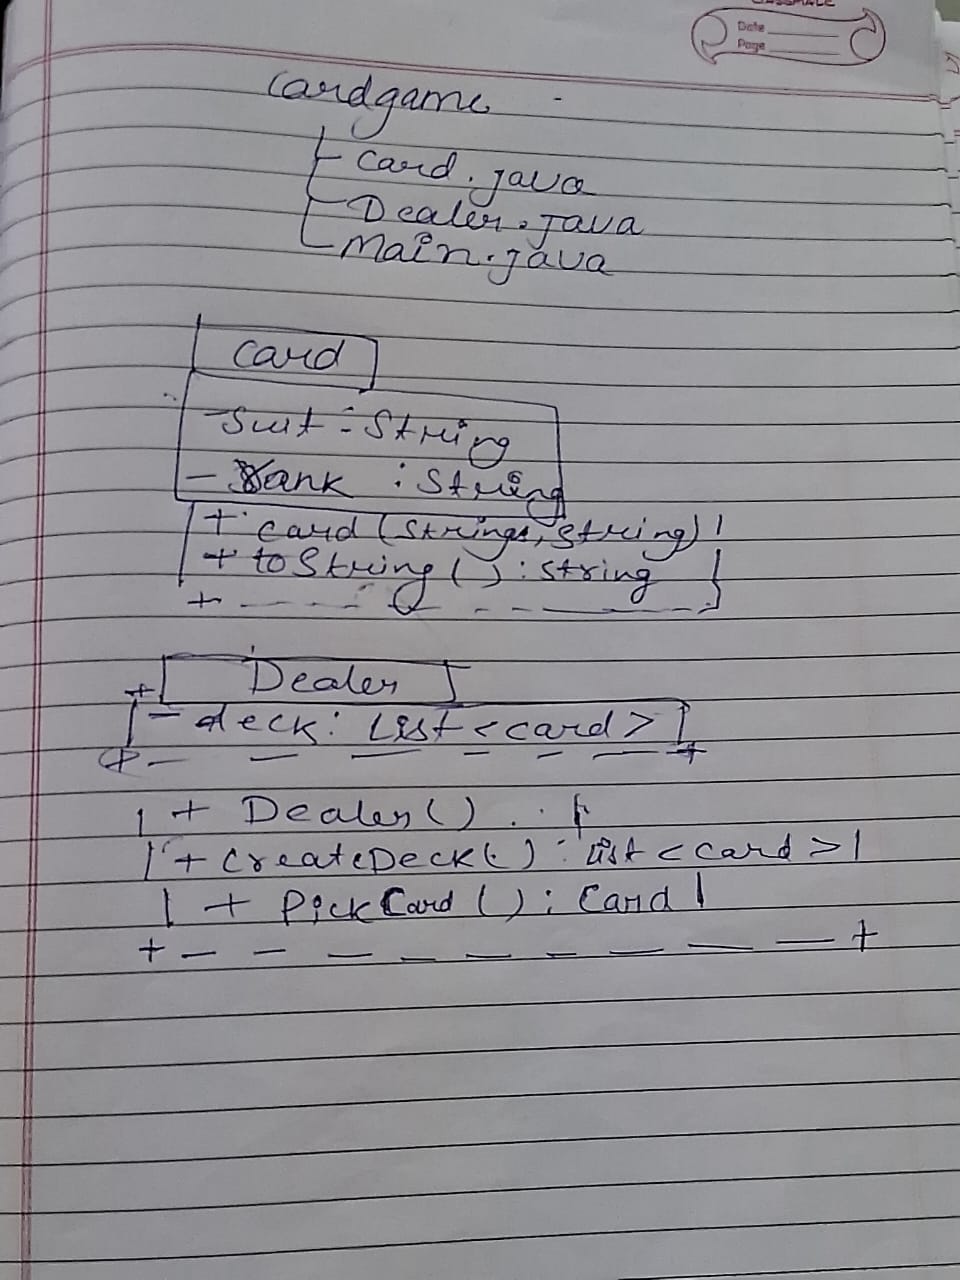 Date
Page
cardgame
Card.java
Dealer.java
Main.java
Card
- Suit : String
- rank : String
+ card (Strings, String)
+ toString () : string
Dealer
- deck: List < card >
+ Dealer()
+ CreateDeck() : List < card >
+ PickCard () : Card